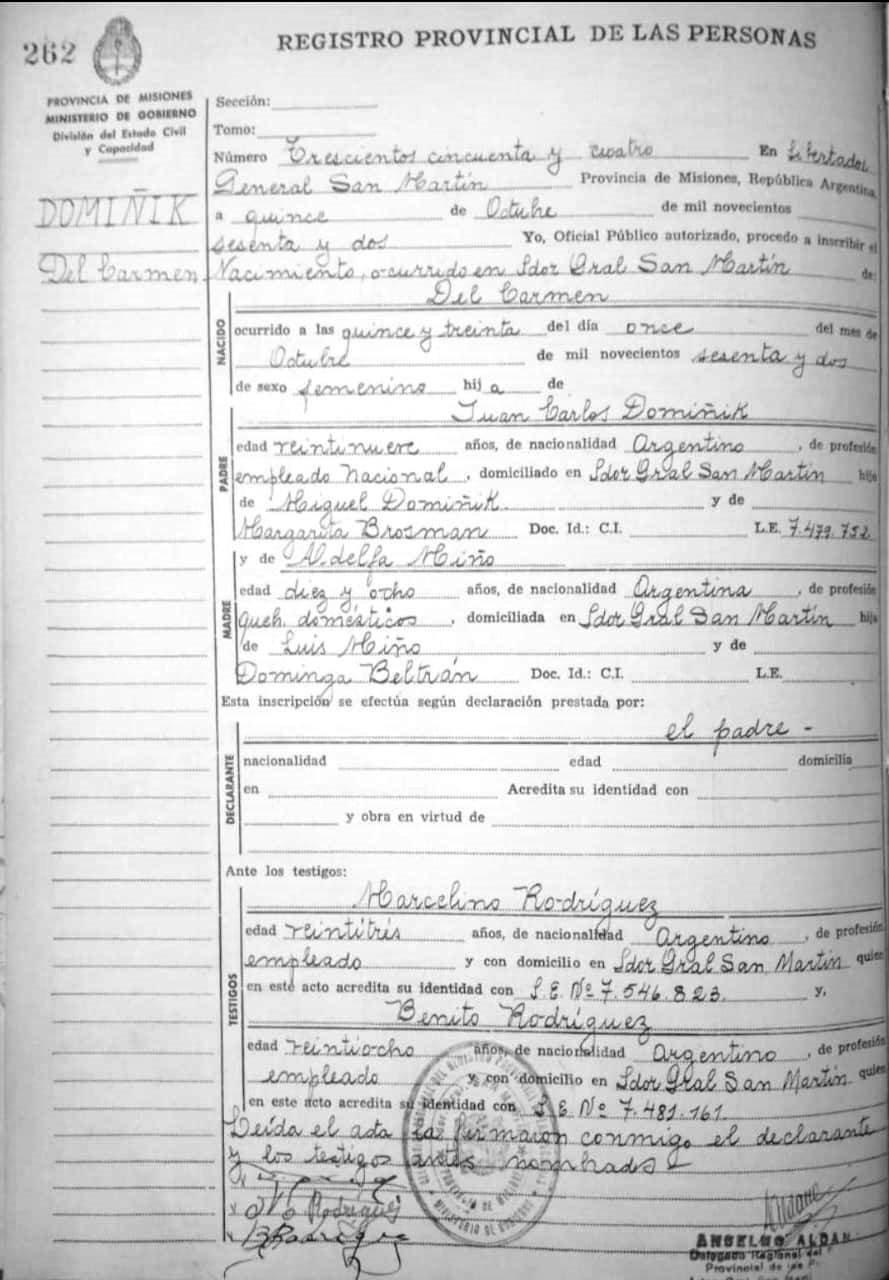 262
REGISTRO PROVINCIAL DE LAS PERSONAS
PROVINCIA DE MISIONES
MINISTERIO DE GOBIERNO
División del Estado Civil
y Capacidad
DOMIÑIK
Del Carmen
Sección:
Tomo:
Número Trescientos cincuenta y cuatro En Libertador
General San Martín Provincia de Misiones, República Argentina,
a quince de Octubre de mil novecientos
sesenta y dos Yo, Oficial Público autorizado, procedo a inscribir el
Nacimiento, ocurrido en Ldor Gral San Martín de:
NACIDO
Del Carmen
ocurrido a las quince y treinta del día once del mes de
Octubre de mil novecientos sesenta y dos
de sexo femenino hija de
PADRE
Juan Carlos Domiñik
edad veintinueve años, de nacionalidad Argentino, de profesión
empleado Nacional, domiciliado en Ldor Gral San Martín hijo
de Miguel Domiñik y de
Margarita Brosman Doc. Id.: C.I. L.E. 7.479.752
MADRE
y de Aldelfa Miño
edad diez y ocho años, de nacionalidad Argentina, de profesión
queh. domésticos, domiciliada en Ldor Gral San Martín hija
de Luis Miño y de
Dominga Beltrán Doc. Id.: C.I. L.E.
Esta inscripción se efectúa según declaración prestada por:
el padre -
DECLARANTE
nacionalidad edad domicilia
en Acredita su identidad con
y obra en virtud de
Ante los testigos:
TESTIGOS
Marcelino Rodríguez
edad veintitrés años, de nacionalidad Argentino, de profesión
empleado y con domicilio en Ldor Gral San Martín quien
en este acto acredita su identidad con L.E. Nº 7.546.823. y,
Benito Rodríguez
edad veintiocho años, de nacionalidad Argentino, de profesión
empleado y con domicilio en Ldor Gral San Martín quien
en este acto acredita su identidad con L.E. Nº 7.481.161
Leída el acta la firmaron conmigo el declarante
y los testigos antes nombrados
Rodríguez
B Rodríguez
MINISTERIO DE GOBIERNO
ANSELMO ALDAN
Delegado Regional del
Provincial de las P.